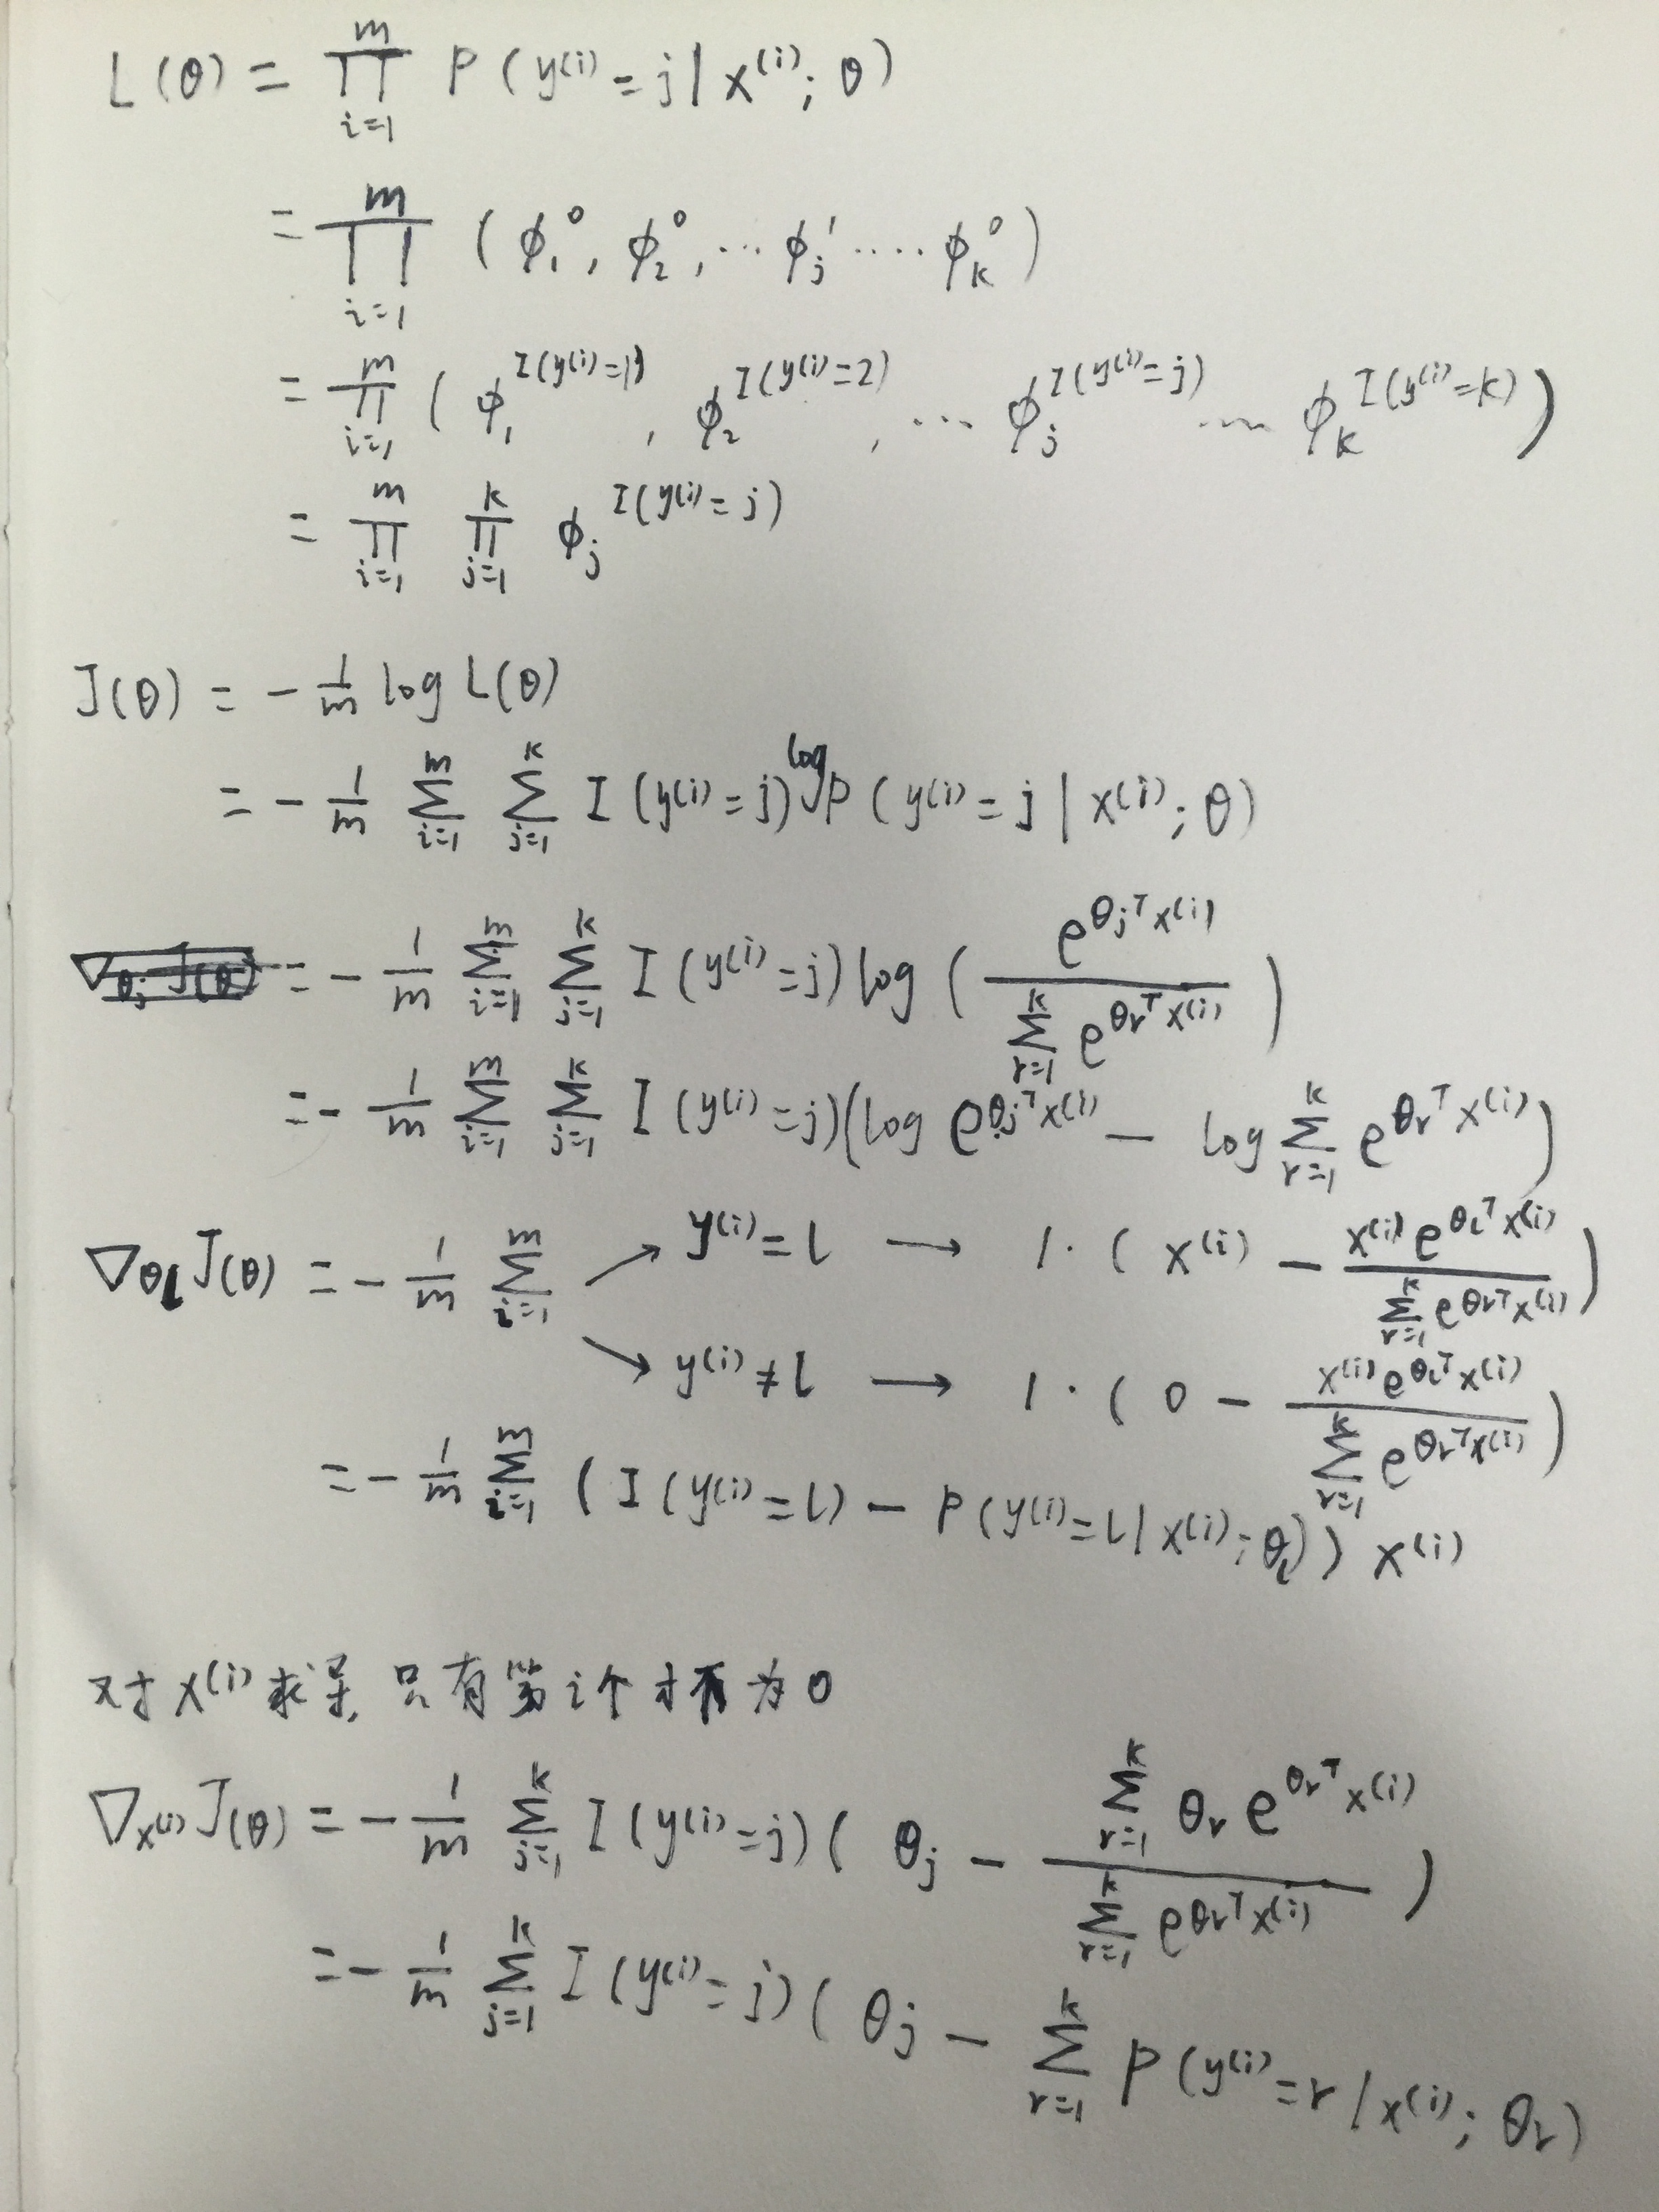 L(θ) = ∏_{i=1}^{m} P(y^{(i)} = j | x^{(i)}; θ)
= ∏_{i=1}^{m} (ϕ_1^0, ϕ_2^0, ... ϕ_j^1 .... ϕ_k^0)
= ∏_{i=1}^{m} (ϕ_1^{I(y^{(i)}=1)}, ϕ_2^{I(y^{(i)}=2)}, ... ϕ_j^{I(y^{(i)}=j)} ... ϕ_k^{I(y^{(i)}=k)})
= ∏_{i=1}^{m} ∏_{j=1}^{k} ϕ_j^{I(y^{(i)}=j)}
J(θ) = - \frac{1}{m} log L(θ)
= - \frac{1}{m} ∑_{i=1}^{m} ∑_{j=1}^{k} I(y^{(i)} = j) log P(y^{(i)} = j | x^{(i)}; θ)
∇_{θ_j} J(θ) = - \frac{1}{m} ∑_{i=1}^{m} ∑_{j=1}^{k} I(y^{(i)} = j) log (\frac{e^{θ_j^T x^{(i)}}}{∑_{r=1}^{k} e^{θ_r^T x^{(i)}}})
= - \frac{1}{m} ∑_{i=1}^{m} ∑_{j=1}^{k} I(y^{(i)} = j)(log e^{θ_j^T x^{(i)}} - log ∑_{r=1}^{k} e^{θ_r^T x^{(i)}})
∇_{θ_l} J(θ) = - \frac{1}{m} ∑_{i=1}^{m} ↗ y^{(i)} = l → 1 · (x^{(i)} - \frac{x^{(i)} e^{θ_l^T x^{(i)}}}{∑_{r=1}^{k} e^{θ_r^T x^{(i)}}})
↘ y^{(i)} ≠ l → 1 · (0 - \frac{x^{(i)} e^{θ_l^T x^{(i)}}}{∑_{r=1}^{k} e^{θ_r^T x^{(i)}}})
= - \frac{1}{m} ∑_{i=1}^{m} (I(y^{(i)} = l) - P(y^{(i)} = l | x^{(i)}; θ_l)) x^{(i)}
对 x^{(i)} 求导, 只有第 i 个才不为 0
∇_{x^{(i)}} J(θ) = - \frac{1}{m} ∑_{j=1}^{k} I(y^{(i)} = j)(θ_j - \frac{∑_{r=1}^{k} θ_r e^{θ_r^T x^{(i)}}}{∑_{r=1}^{k} e^{θ_r^T x^{(i)}}})
= - \frac{1}{m} ∑_{j=1}^{k} I(y^{(i)} = j)(θ_j - ∑_{r=1}^{k} P(y^{(i)} = r | x^{(i)}; θ_r)